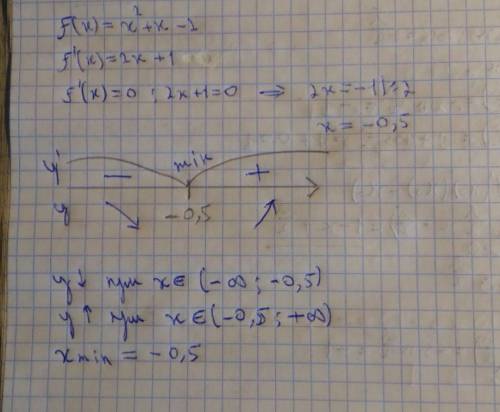 f(x) = x² + x - 2
f'(x) = 2x + 1
f'(x) = 0 ; 2x+1=0 ⇒ 2x = -1 | : 2
x = -0,5
y' — min +
y ↘ -0,5 ↗
y ↓ при x ∈ (-∞ ; -0,5)
y ↑ при x ∈ (-0,5 ; +∞)
x min = -0,5